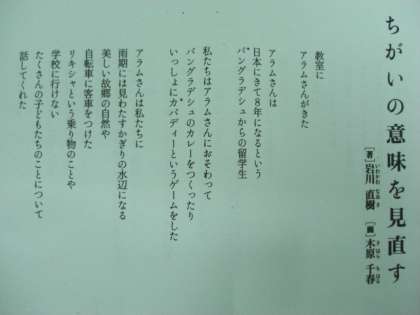 ちがいの意味を見直す
[著]岩川 直樹 [画]木原 千春
教室に
アラムさんがきた
アラムさんは
日本にきて8年になるという
バングラデシュからの留学生
私たちはアラムさんにおそわって
バングラデシュのカレーをつくったり
いっしょにカバディーというゲームをした
アラムさんは私たちに
雨期には見わたすかぎりの水辺になる
美しい故郷の自然や
自転車に客車をつけた
リキシャという乗り物のことや
学校に行けない
たくさんの子どもたちのことについて
話してくれた